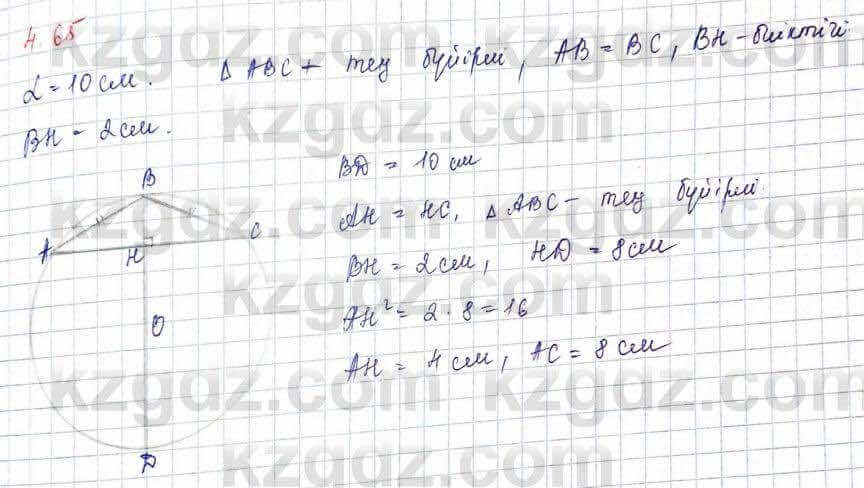 4.65
d = 10 см.
△ ABC – тең бүйірлі, AB = BC, BH – биіктігі
BH – 2 см.
BD = 10 см
AH = HC, △ ABC – тең бүйірлі.
BH = 2 см, HD = 8 см
AH² = 2 · 8 = 16
AH = 4 см, AC = 8 см
B
A
C
H
O
D
kzgdz.com
kzgdz.com
kzgdz.com
kzgdz.com
kzgdz.com
kzgdz.com
kzgdz.com